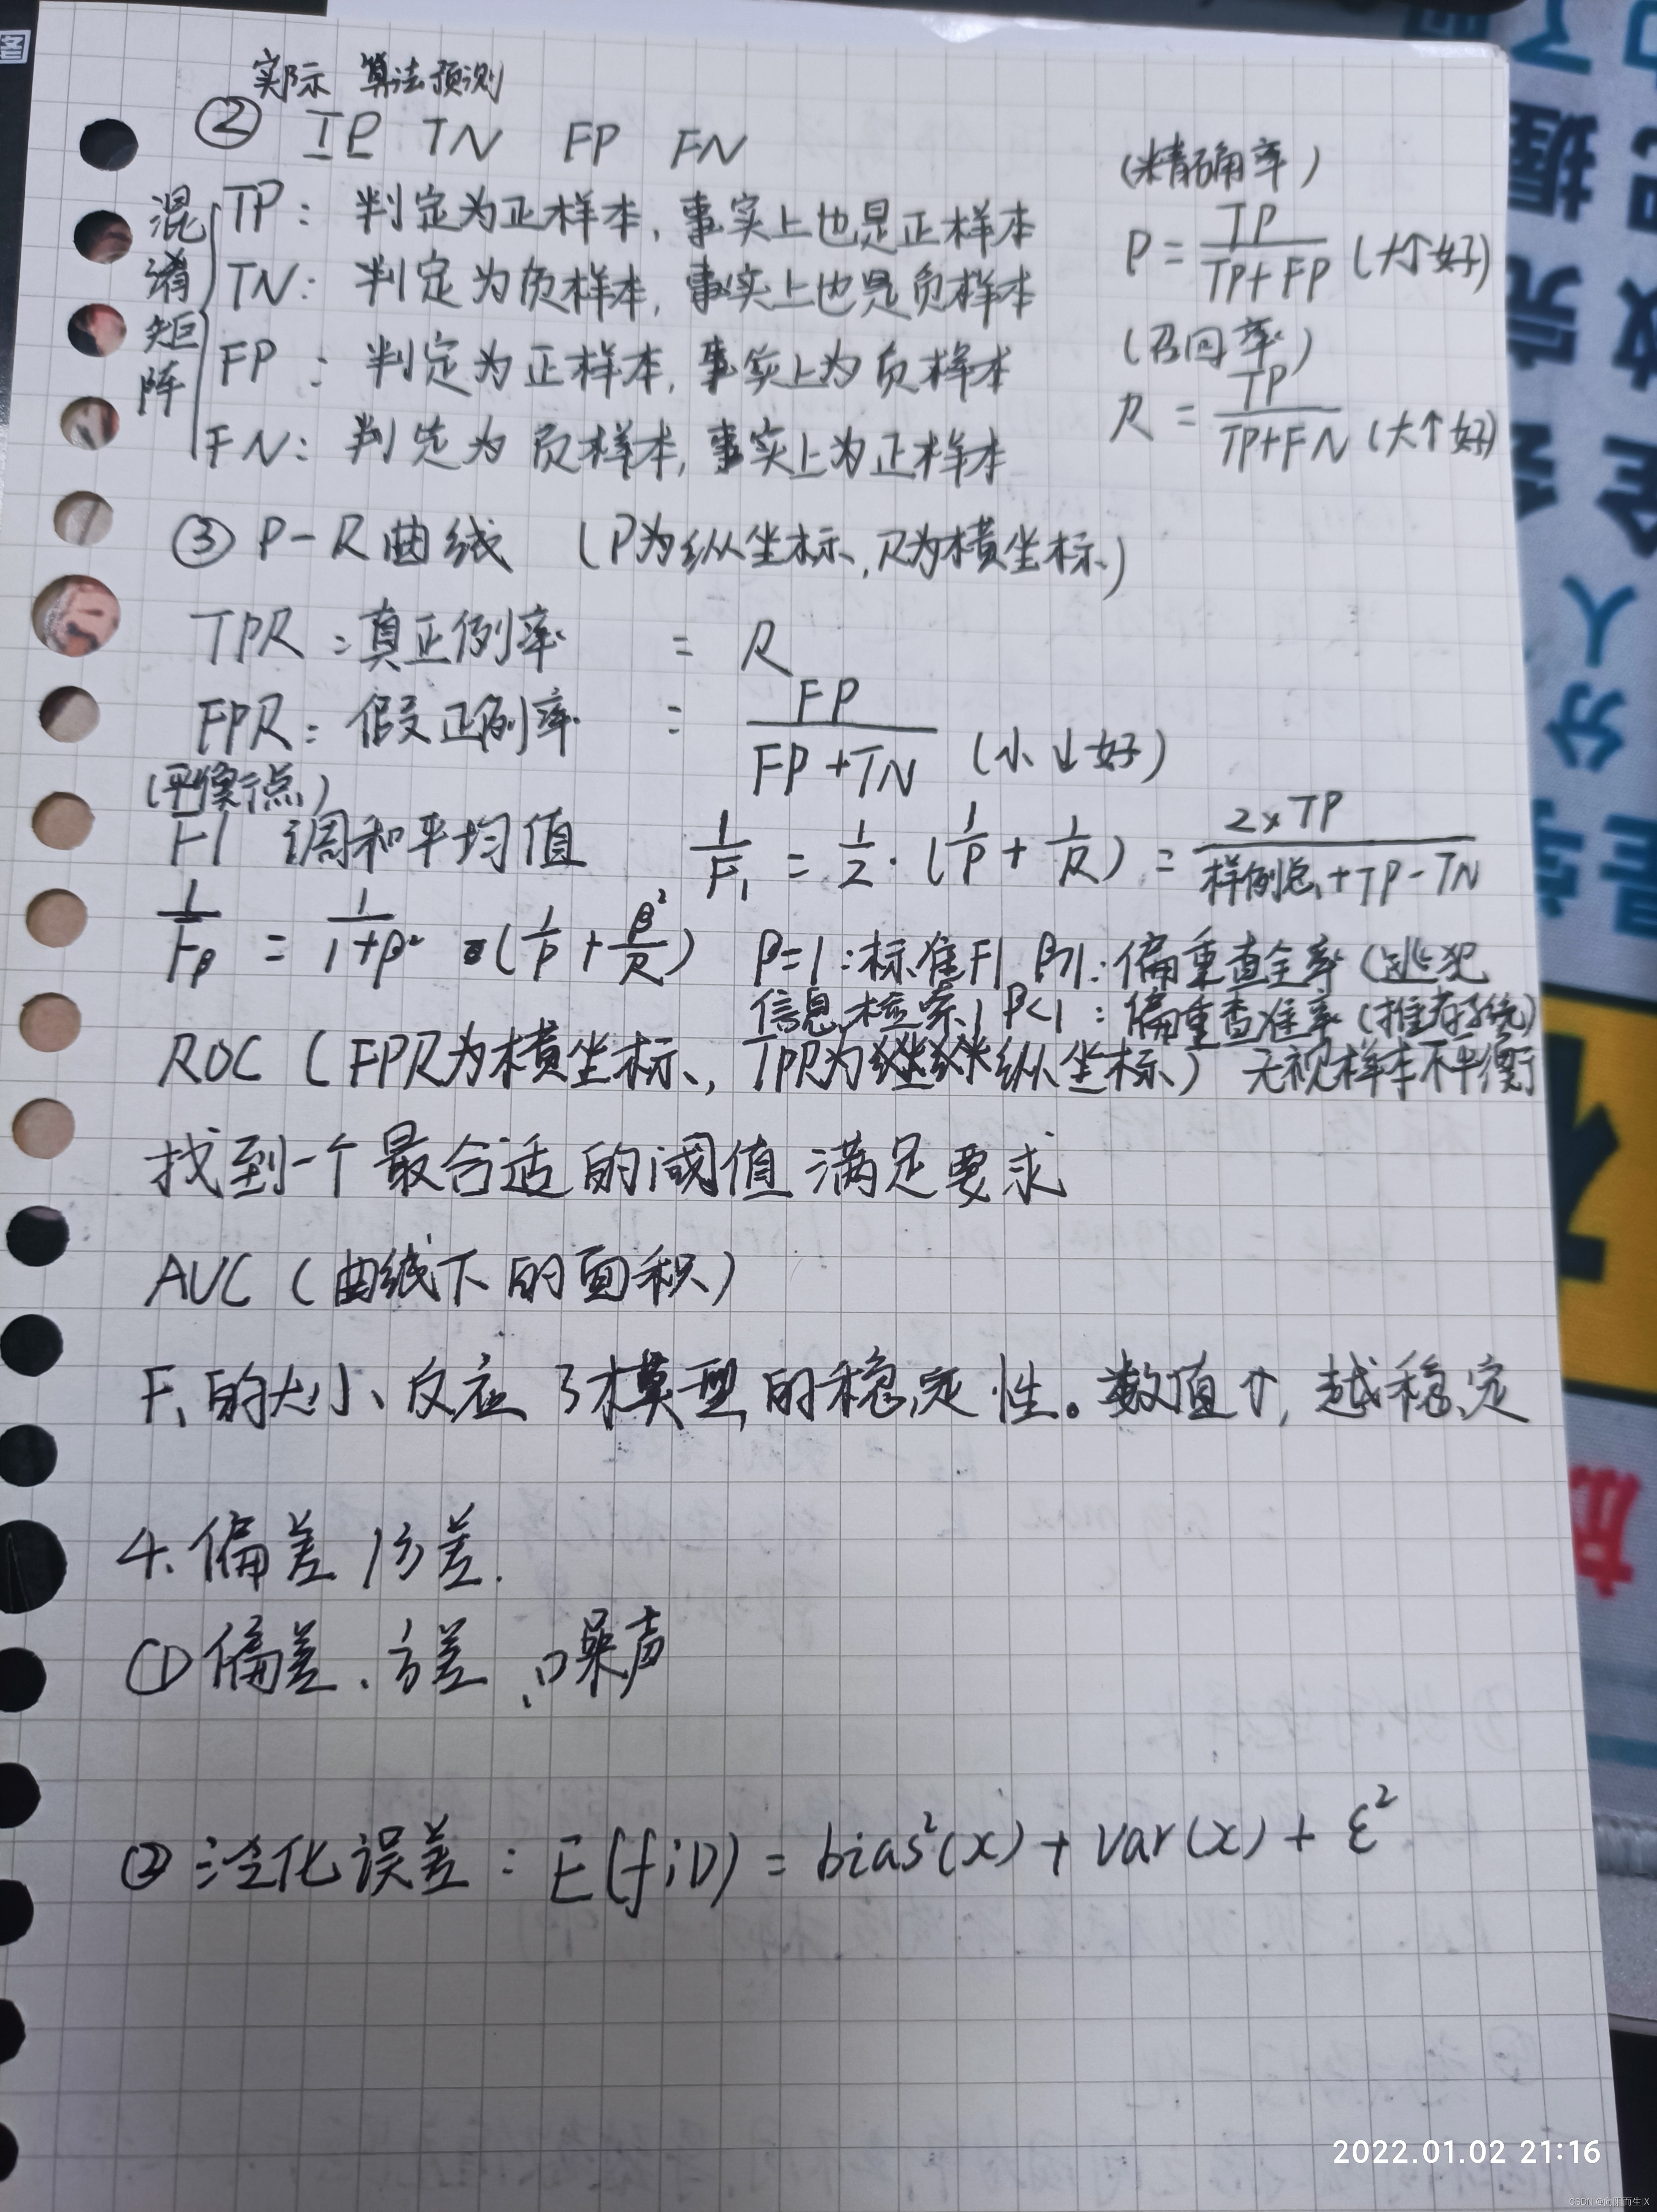 实际 算法预测
② TP TN FP FN
(精确率)
混淆矩阵
TP: 判定为正样本,事实上也是正样本
P = TP / (TP+FP) (大↑好)
TN: 判定为负样本,事实上也是负样本
(召回率)
FP: 判定为正样本,事实上为负样本
R = TP / (TP+FN) (大↑好)
FN: 判定为负样本,事实上为正样本
③ P-R曲线 (P为纵坐标,R为横坐标)
TPR:真正例率 = R
FPR:假正例率 = FP / (FP+TN) (小↓好)
(平衡点)
F1 调和平均值 1/F₁ = 1/2·(1/P + 1/R) = 2×TP / (样例总+TP-TN)
1/Fβ = 1/(1+β²) ·(1/P + β²/R) β=1:标准F1 β>1:偏重查全率(逃犯
信息检索) β<1:偏重查准率(推荐系统)
ROC (FPR为横坐标,TPR为纵坐标) 无视样本不平衡
找到一个最合适的阈值满足要求
AUC (曲线下的面积)
F₁的大小反应了模型的稳定性。数值↑,越稳定
4.偏差/方差.
①偏差、方差、噪声
②泛化误差: E(f;D) = bias²(x) + var(x) + ε²
2022.01.02 21:16
CSDN @向阳而生|X